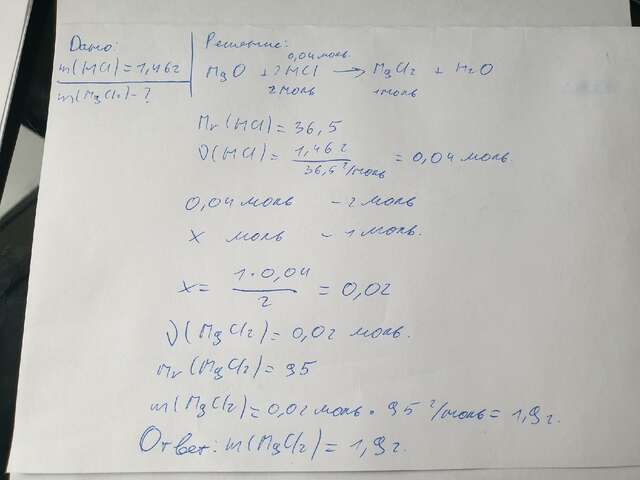 Дано:
m(HCl) = 1,46 г
m(MgCl2) - ?
Решение:
0,04 моль
MgO + 2HCl → MgCl2 + H2O
2 моль 1 моль
Mr(HCl) = 36,5
ν(HCl) = 1,46 г / 36,5 г/моль = 0,04 моль.
0,04 моль – 2 моль
x моль – 1 моль.
x = 1 · 0,04 / 2 = 0,02
ν(MgCl2) = 0,02 моль.
Mr(MgCl2) = 95
m(MgCl2) = 0,02 моль · 95 г/моль = 1,9 г.
Ответ: m(MgCl2) = 1,9 г.